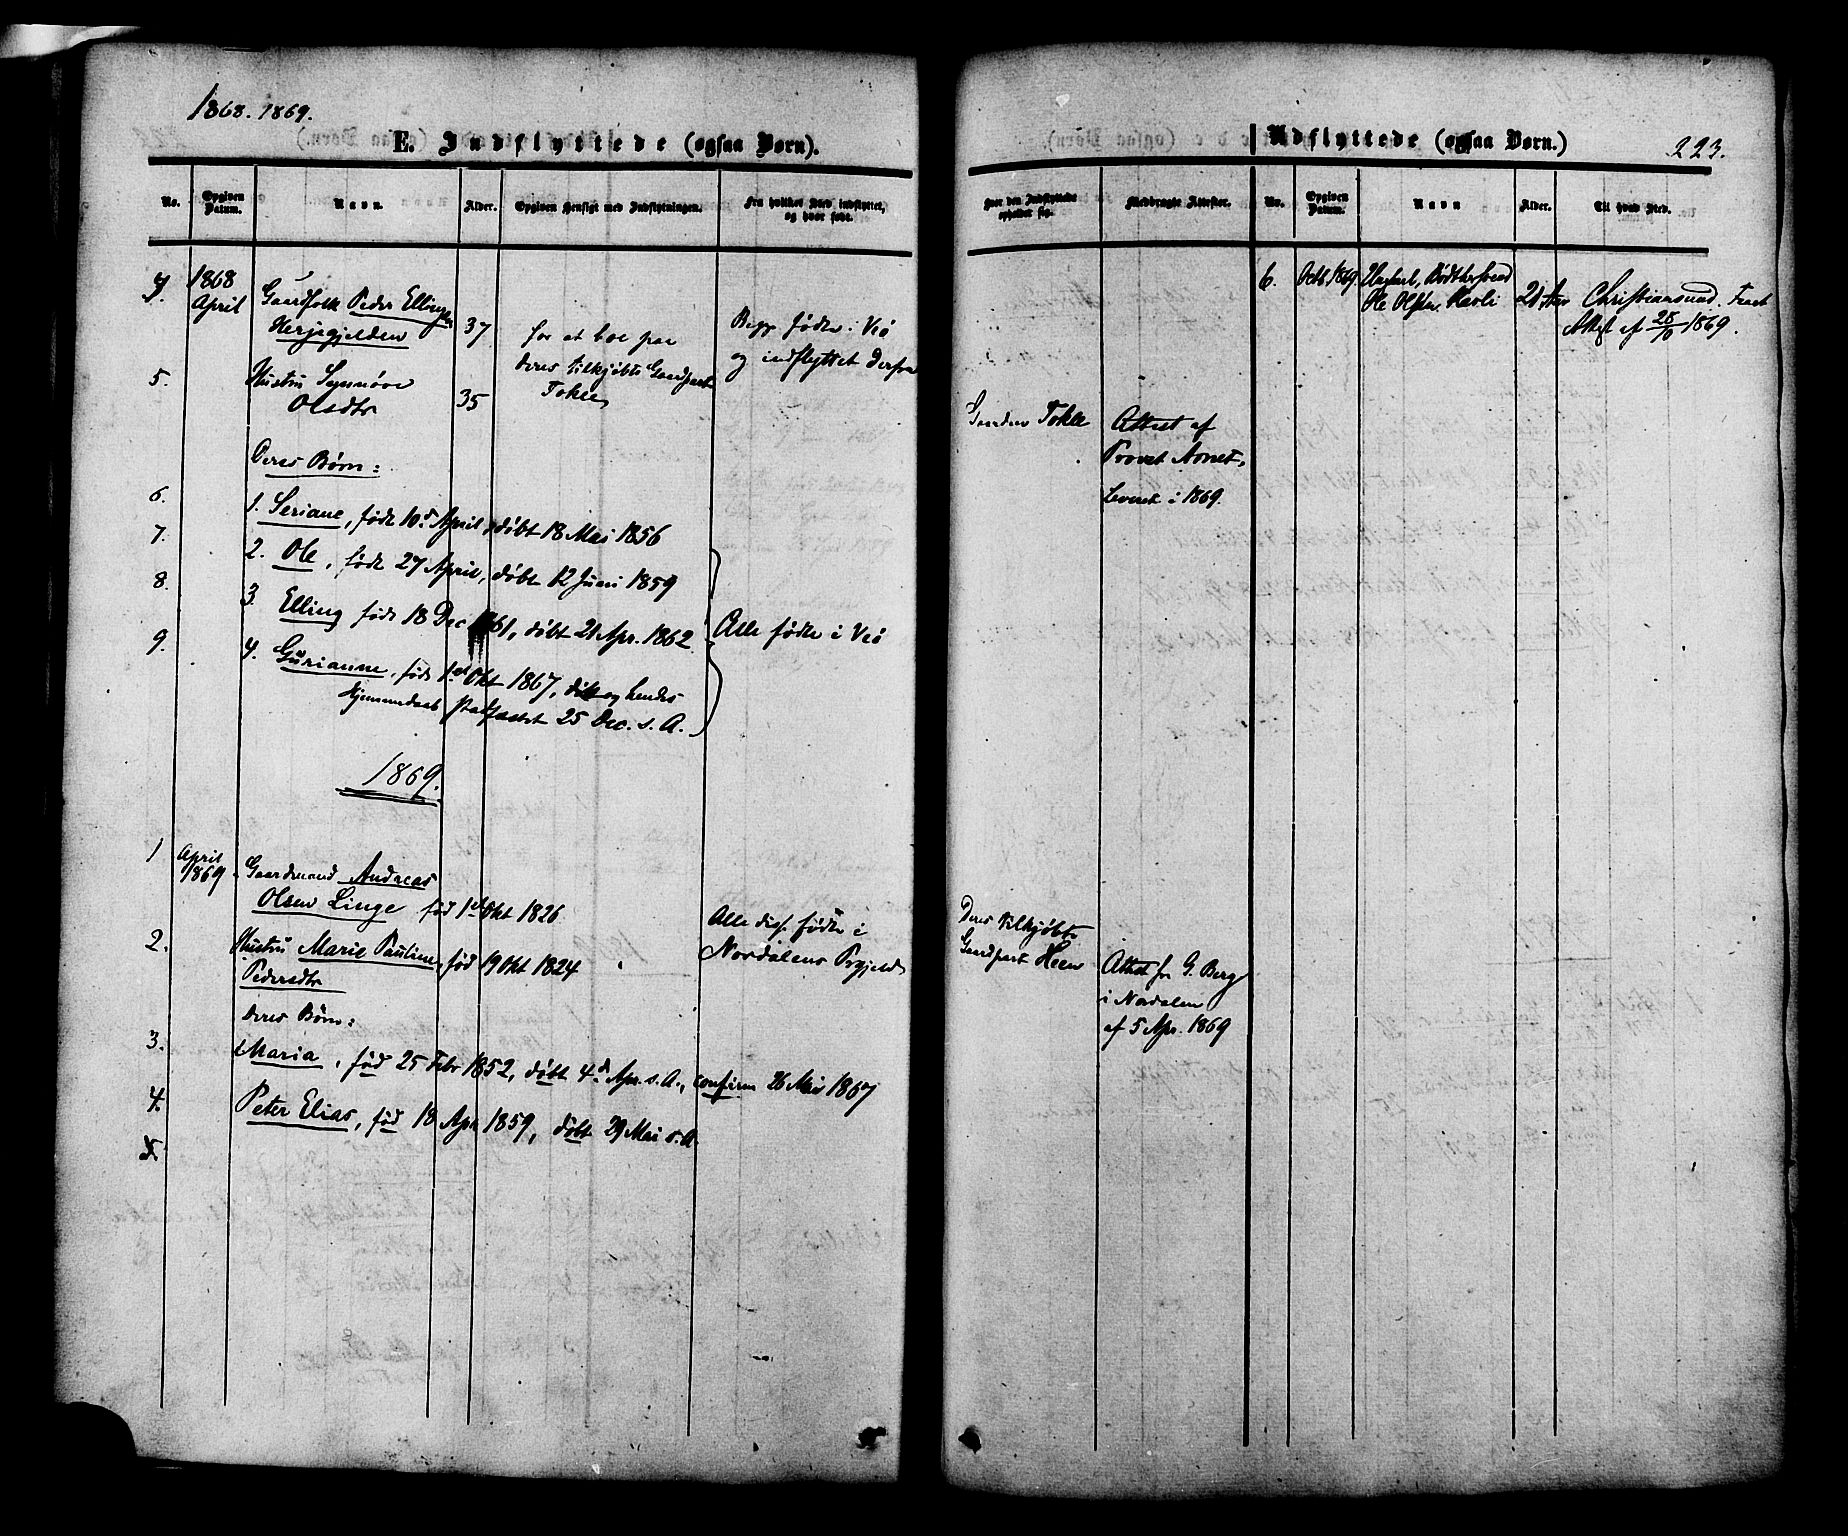 1868. 1869.
E. Indflyttede (ogsaa Børn).
No.
Opgiven Datum.
Navn.
Alder.
Opgiven Hensigt med Indflytningen.
Fra hvilket Sted indflyttet, og hvor født.
4.
1868
April
Gaardfolk Peder Ellingsen
Herjegjelden
37
for at boe paa
deres tilkjøbte Gaardpart
Tokle
Begge fødte i Veø
og indflyttet derfra
5.
Hustru Synnøve
Olsdtr
35
Deres Børn:
6.
1. Seriane, født 10d April, døbt 18 Mai 1856
7.
2. Ole, født 27 April, døbt 12 Juni 1859
8.
3. Elling født 18 Dec 1861, døbt 21 Apr. 1862
Alle fødte i Veø
9.
4. Gurianne, født 1st Okt 1867, døbt og hendes
Hjemmedaab stadfæstet 25 Dec. s. A.
1869.
1
April
1869.
Gaardmand Andreas
Olsen Linge født 1st Okt 1826
Alle disse fødte i
Nordalens Prgjeld
2.
Hustru Marie Pauline, fød 19 Okt 1824
Pedersdtr
Deres Børn:
3.
Maria, fød 25 Febr 1852, døbt 4d Apr. s. A., confirm 26 Mai 1867
4.
Peter Elias, fød 18 Apr 1859, døbt 29 Mai s. A.
5.
Udflyttede (ogsaa Børn.)
223.
Hvor den Indflyttede opholder sig.
Medbragte Attester.
No.
Opgiven Datum.
Navn
Alder.
Til hvad Sted.
6.
Octb. 1869.
Ungkarl, Bødkersvend
Ole Olsen Havli
21 Apr
Christiansund.
Attest af 28/10 1869.
Gaarden Tokle
Attest af
Provst Aonet,
Leveret i 1869.
Deres tilkjøbte
Gaardpart Heen
Attest fr G. Berg
i Nordalen
af 5 Apr. 1869